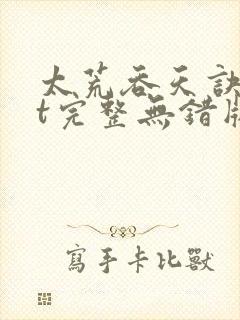 太荒吞天訣
t完整無錯版
寫手卡比獸